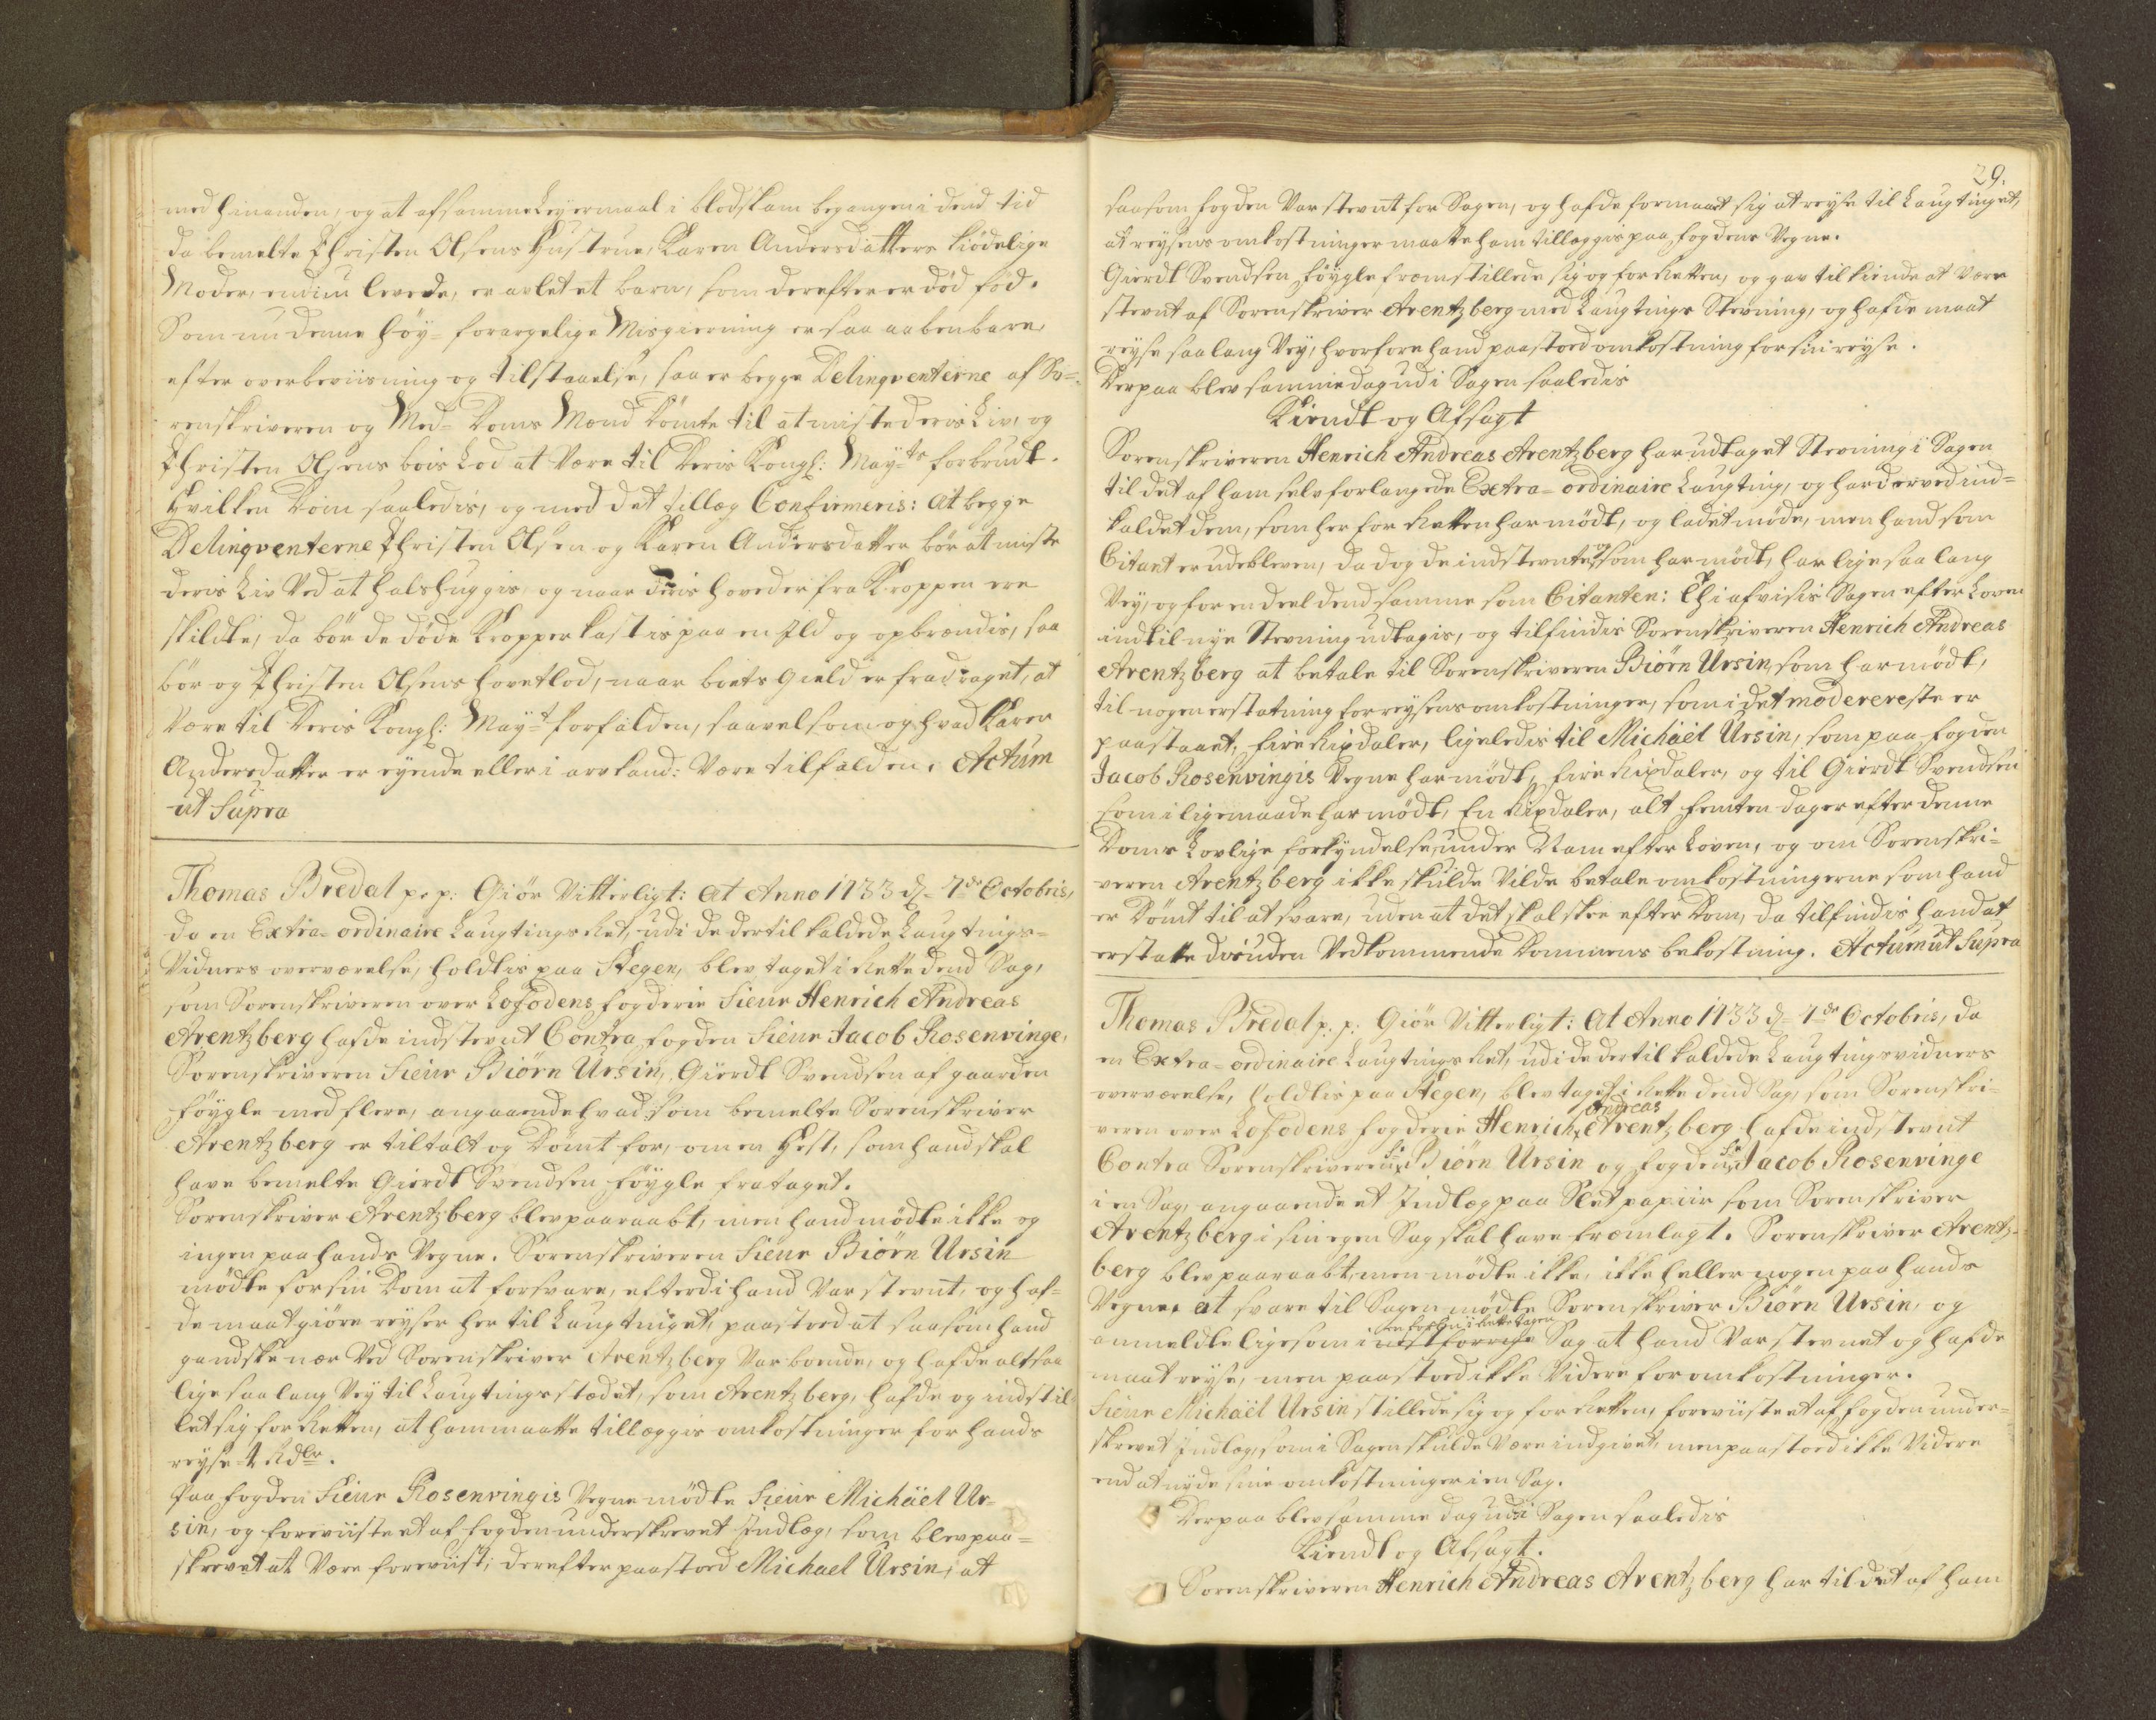 med hinanden, og at af samme Leyermaal i blodskam begangen i dend tid
da bemelte Christen Olsens Hustrue, Karen Andersdatters kiødelige
Moder, endnu levede, er avlet et barn, som derefter er død fød.
Som nu denne høy- forargelige Misgierning er saa aabenbare,
efter overbeviisning og tilstaaelse, saa er begge Delinqventerne af So-
renskriveren og Med- Doms Mænd Dømte til at miste deris Liv, og
Christen Olsens bois Lod at være til Deris Kongl: Mayts forbrudt.
Hvilken Dom saaledis, og med det tillæg Confirmeris: At begge
Delinqventerne Christen Olsen og Karen Andersdatter bør at miste
deris Liv ved at halshuggis, og naar deris hoveder fra Kroppen ere
skildte, da bør de døde Kropper kastis paa en Ild og opbrændis, saa
bør og Christen Olsens hovetlod, naar boets Gield er fradraget, at
være til Deris Kongl: Mayt forfalden, saavelsom og hvad Karen
Andersdatter er eyende eller i arv kand: være tilfalden. Actum
ut Supra
Thomas Bredal p. p: Giør Vitterligt: At Anno 1733 d. 7de Octobris,
da en Extra- ordinaire Laugtings Ret, udi de dertil kaldede Laugtings-
Vidners overværelse, holdtis paa Stegen, blev taget i Rette dend Sag,
som Sorenskriveren over Lofodens fogderie Sieur Henrich Andreas
Arentzberg hafde indstevnt Contra fogden Sieur Jacob Rosenvinge,
Sorenskriveren Sieur Biörn Ursin, Gierdt Svendsen af gaarden
Föygle med flere, angaaende hvad som bemelte Sorenskriver
Arentzberg er tiltalt og Dömt for, om en Hest, som hand skal
have bemelte Gierdt Svendsen Föygle frataget.
Sorenskriver Arentzberg blev paaraabt, men hand mødte ikke og
ingen paa hands Vegne. Sorenskriveren Sieur Biörn Ursin
mødte for sin Dom at forsvare, efterdi hand Var stevnt, og haf-
de maat giøre reyser her til Laugtinget, paastoed at saasom hand
gandske nær Ved Sorenskriver Arentzberg Var boende, og hafde altsaa
lige saa lang Vey til Laugtings stædet, som Arentzberg, hafde og indstil-
let sig for Retten, at ham maatte tillæggis omkostninger for hands
reyse 4 Rdlr.
Paa fogden Sieur Rosenvingis Vegne mødte Sieur Michäel Ur-
sin, og foreviiste et af fogden underskrevet Indlæg, som blev paa-
skrevet at Være foreviist; derefter paastoed Michael Ursin, at
29.
saasom fogden Var stevnt for Sagen, og hafde formaaet sig at reyse til Laugtinget,
at reysens omkostninger maatte ham tillæggis paa fogdens Vegne.
Gierdt Svendsen Föygle fremstillede sig og for Retten, og gav tilkiende at Være
stevnt af Sorenskriver Arentzberg med Laugtings Stevning, og hafde maat
reyse saa lang Vey, hvorfore hand paastoed omkostning for sin reyse.
Derpaa blev samme dag udi Sagen saaledis
Kiendt og Afsagt
Sorenskriveren Henrich Andreas Arentzberg har udtaget Stevning i Sagen
til det af ham selv forlangede Extra- ordinaire Laugting, og har derved ind-
kaldet dem, som her for Retten har mødt, og ladet møde, men hand som
Citant er udebleven, da dog de indstevnte, og som har mødt, har lige saa lang
Vey, og for en deel dend samme som Citanten: Thi afvisis Sagen efter Loven
indtil nye Stevning udtagis, og tilfindis Sorenskriveren Henrich Andreas
Arentzberg at betale til Sorenskriveren Biörn Ursin, som har mødt,
til nogen erstatning for reysens omkostninger, som i det moderereste er
paastaaet, fire Rixdaler, ligeledis til Michäel Ursin, som paa fogden
Jacob Rosenvingis Vegne har mødt, fire Rixdaler, og til Gierdt Svendsen
som i ligemaade har mødt, En Rixdaler, alt femten dager efter denne
Doms Lovlige forkyndelse, under Nam efter Loven, og om Sorenskri-
veren Arentzberg ikke skulde Vilde betale omkostningerne som hand
er Dömt til at svare, uden at det skal skee efter Dom, da tilfindis hand at
erstatte desuden Vedkommende Dommens bekostning. Actum ut Supra
Thomas Bredal p. p. Giør Vitterligt: At Anno 1733 d. 7de Octobris, da
en Extra- ordinaire Laugtings Ret, udi de dertil kaldede Laugtings vidners
overværelse, holdtis paa Stegen, blev taget i Rette dend Sag, som Sorenskri-
veren over Lofodens fogderie Henrich Andreas Arentzberg hafde indstevnt
Contra Sorenskriveren Sr Biörn Ursin og fogden Sr Jacob Rosenvinge
i en Sag, angaaende et Indlæg paa Slet papiir som Sorenskriver
Arentzberg i sin egen Sag skal have fremlagt. Sorenskriver Arentz-
berg blev paaraabt, men mødte ikke, ikke heller nogen paa hands
Vegne. At svare til Sagen mødte Sorenskriver Biörn Ursin, og
anmeldte ligesom i nest forrige Sag at hand Var stevnet og hafde
maat reyse, men paastoed ikke Videre for omkostninger.
Sieur Michäel Ursin stillede sig og for Retten, foreviiste et af fogden under-
skrevet Indlæg, som i Sagen skulde Være indgivet, men paastoed ikke Videre
end at nyde sine omkostninger i en Sag.
Derpaa blev samme dag udi Sagen saaledis
Kiendt og Afsagt.
Sorenskriveren Henrich Andreas Arentzberg har til det af ham